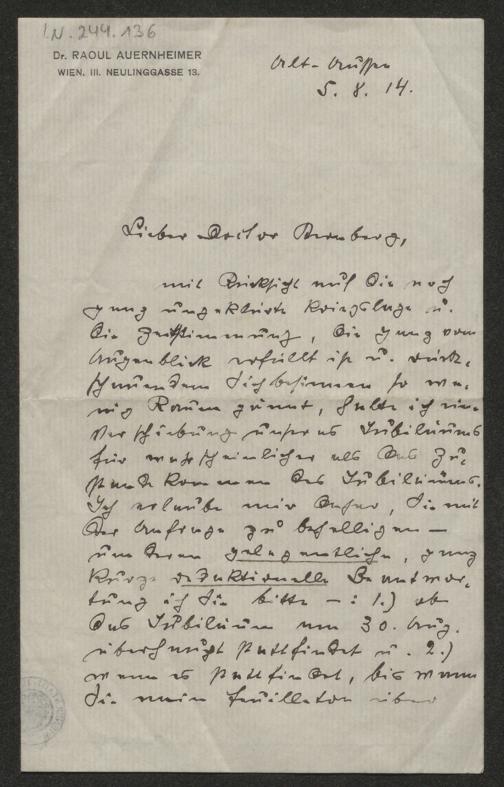 I.N. 244.136
Dr. RAOUL AUERNHEIMER
WIEN. III. NEULINGGASSE 13.
Alt-Aussee
5. 8. 14.
Lieber Doctor Sternberg,
mit Rücksicht auf die noch
ganz ungeklärte Kriegslage u.
die Zeitstimmung, die ganz vom
Augenblick erfüllt ist u. rück-
schauendem Sichbesinnen so we-
nig Raum gönnt, halte ich eine
Verschiebung unseres Jubiläums
für wahrscheinlicher als das Zu-
standekommen des Jubiläums.
Ich erlaube mir daher, Sie mit
der Anfrage zu behelligen —
um deren gelegentliche, ganz
kurze redaktionelle Beantwor-
tung ich Sie bitte — : 1.) ob
das Jubiläum am 30. Aug.
überhaupt stattfindet u. 2.)
wenn es stattfindet, bis wann
Sie mein Feuilleton über